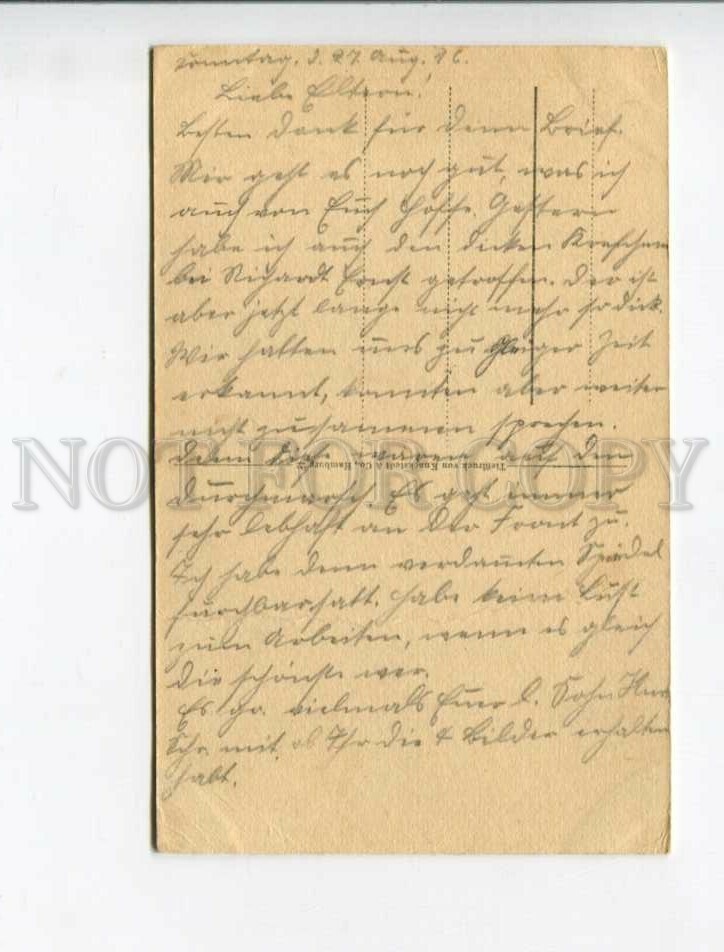 Sonntag, d. 27. Aug. 16.
Liebe Eltern!
Besten Dank für denn Brief.
Mir geht es noch gut, was ich
auch von Euch hoffe. Gestern
habe ich auch den dicken
bei Richardt Ernst getroffen. Der ist
aber jetzt lange nicht mehr so dick.
Wir hatten uns zu gleiger Zeit
erkannt, konnten aber weiter
nicht zusammen sprechen.
Denn diese waren auf den
Durchmarsch. Es geht immer
sehr lebhaft an der Front zu.
Ich habe denn verdamten
furchbar satt. Habe keine Lust
zum Arbeiten, wenn es gleich
die schönste wer.
Es gr. vielmals Euer l. Sohn
Schr. mit ob Ihr die 4 Bilder erhalten
habt.
Tiefdruck von Knackstedt & Co., Hamburg
NOT FOR COPY